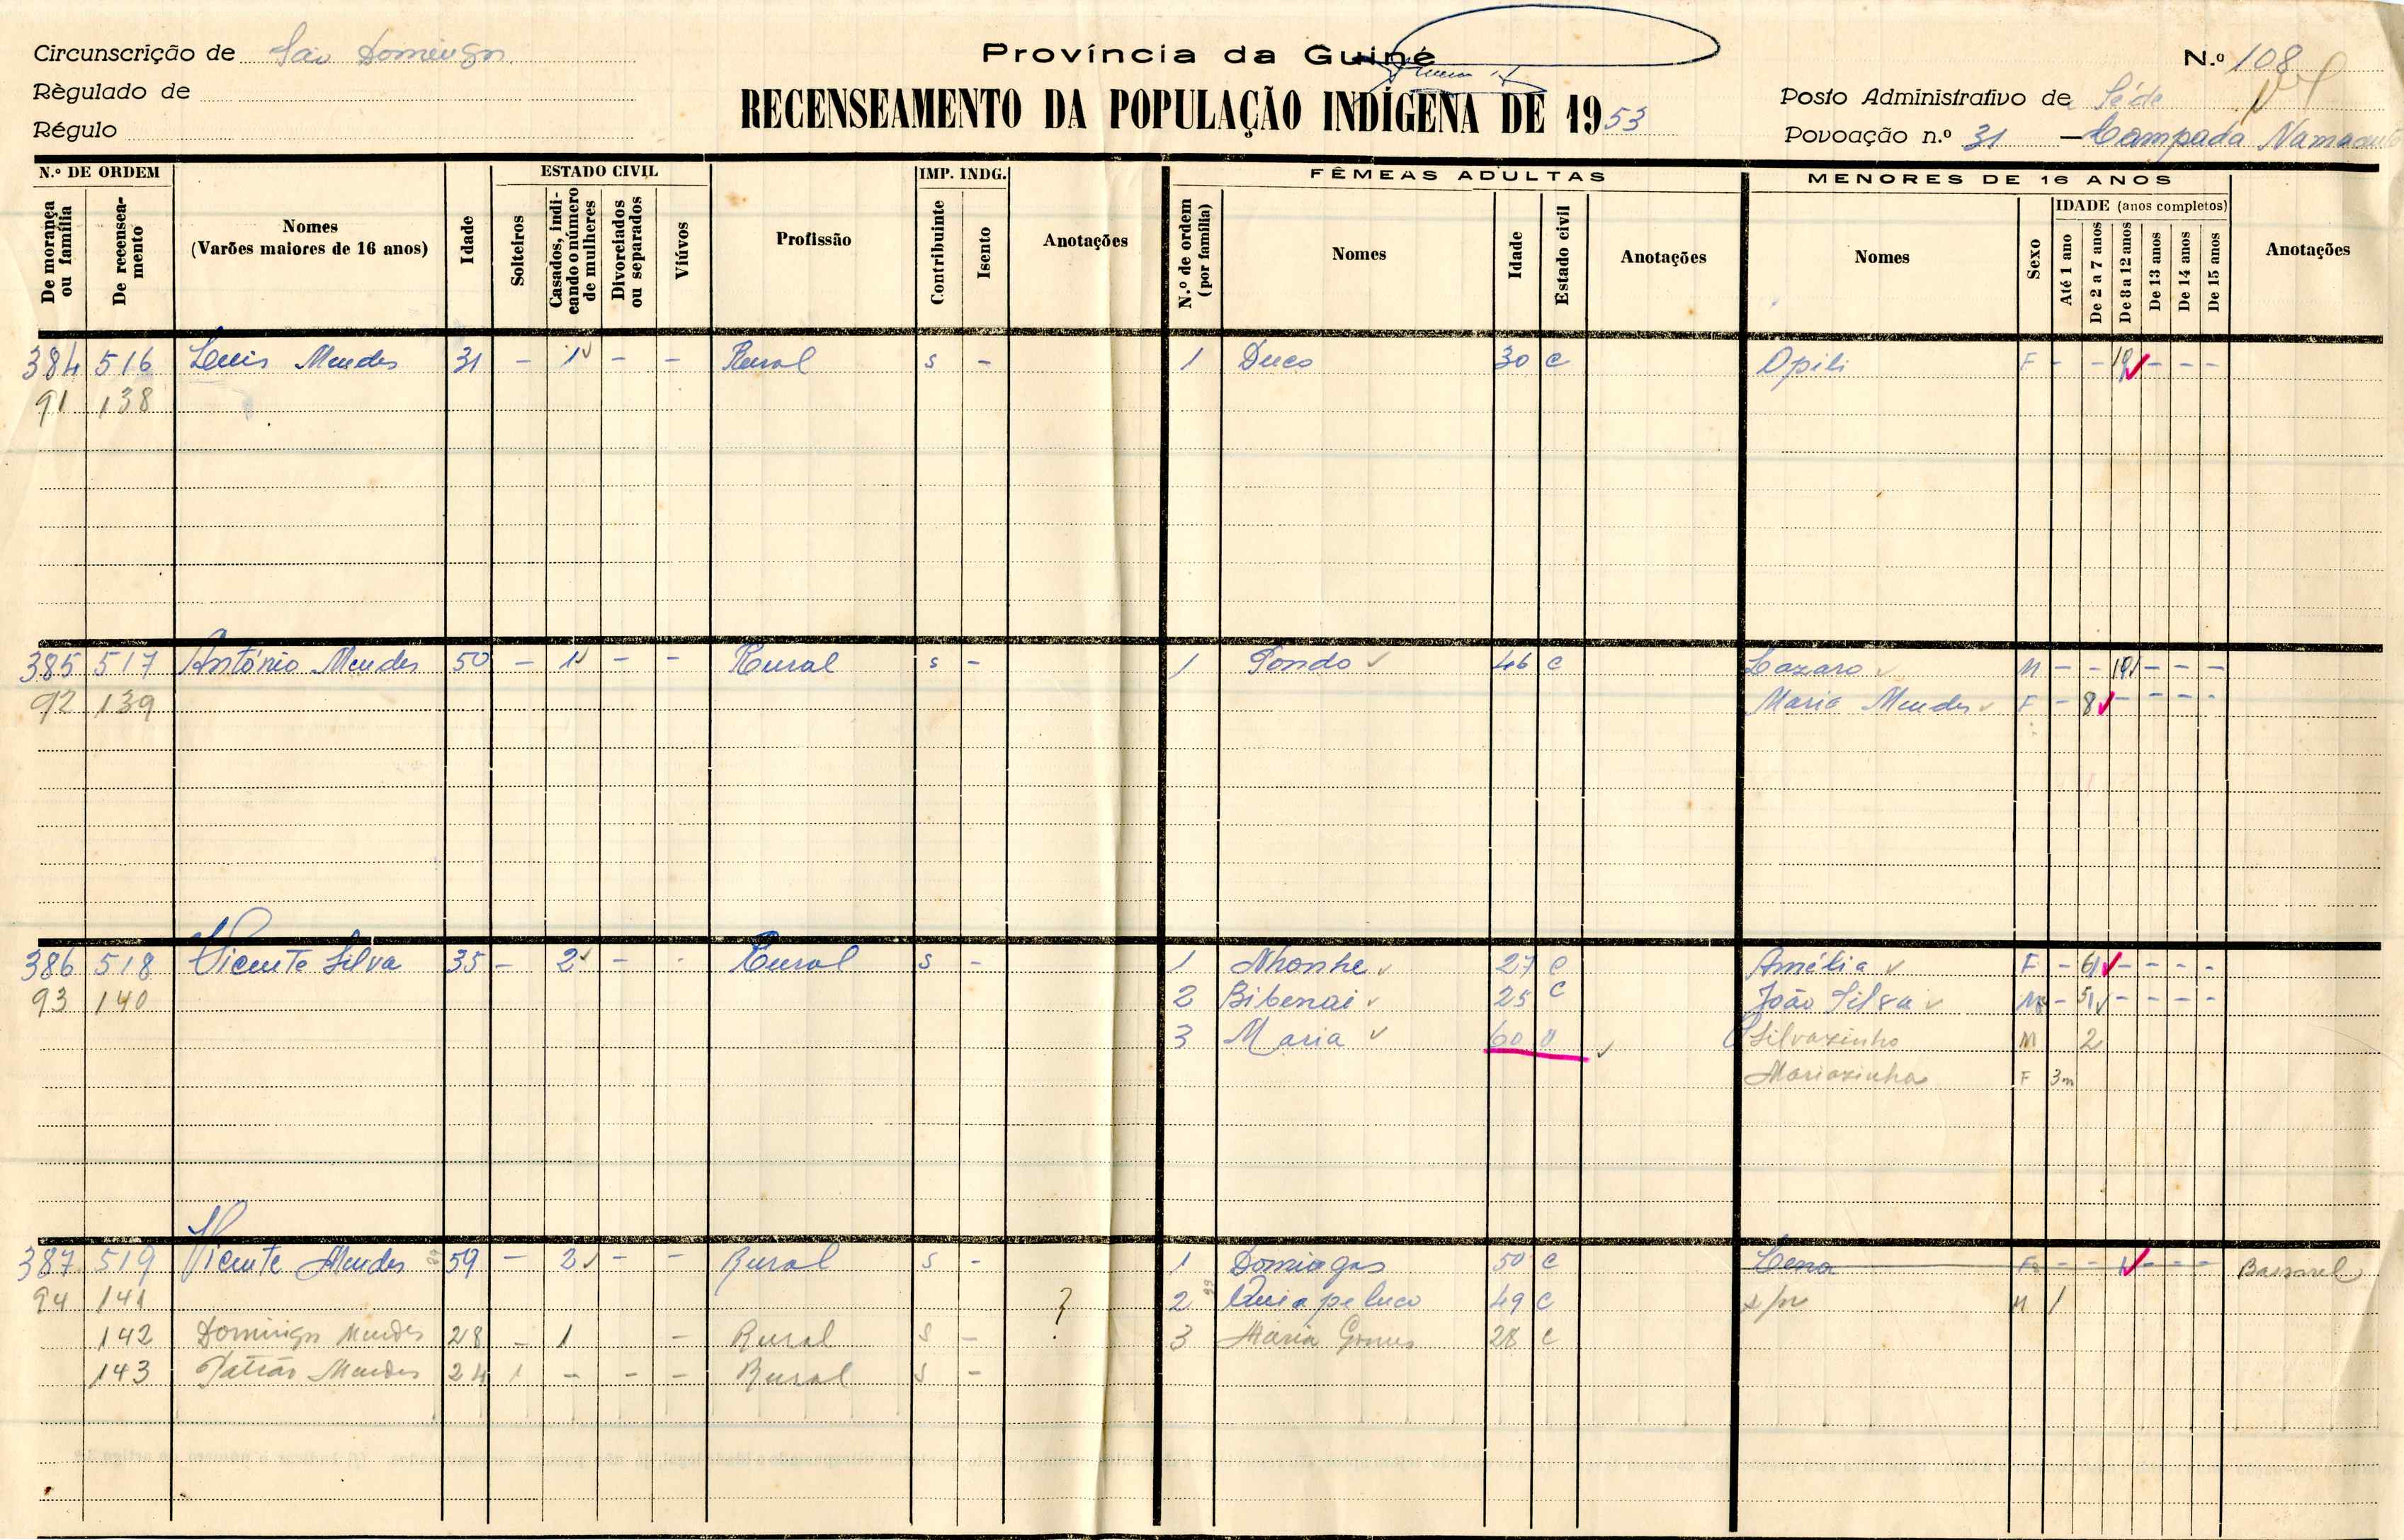 Circunscrição de São Domingos
Règulado de
Régulo
Província da Guiné
RECENSEAMENTO DA POPULAÇÃO INDÍGENA DE 1953
N.º 108
Posto Administrativo de Séde
Povoação n.º 31 — Campada
N.º DE ORDEM
De morança ou família
De recenseamento
Nomes
(Varões maiores de 16 anos)
Idade
ESTADO CIVIL
Solteiros
Casados, indicando o número de mulheres
Divorciados ou separados
Viúvos
Profissão
IMP. INDG.
Contribuinte
Isento
Anotações
FÊMEAS ADULTAS
N.º de ordem (por família)
Nomes
Idade
Estado civil
Anotações
MENORES DE 16 ANOS
Nomes
Sexo
IDADE (anos completos)
Até 1 ano
De 2 a 7 anos
De 8 a 12 anos
De 13 anos
De 14 anos
De 15 anos
Anotações
384 516 Luis Mendes 31 - 1 - - Rural s - 1 Duco 30 c Opili F - - - - -
91 138
385 517 António Mendes 50 - 1 - - Rural s - 1 46 c Lazaro M - - - - -
92 139 Maria Mendes F - 8 - - - -
386 518 Vicente Silva 35 - 2 - - Rural s - 1 Nhonhe 27 c Amélia F - 6 - - - -
93 140 2 Bibenai 25 c João Silva M - 5 - - - -
3 Maria 60 Silvazinho M 2
Mariazinha F 3m
387 519 Vicente Mendes 59 - 2 - - Rural s - 1 Domingas 50 c - - - - - Bassarel
94 141 ? 2 49 c s/n M 1
142 Domingos Mendes 28 - 1 - Rural s - 3 Maria Gomes 28 c
143 Patrão Mendes 24 1 - - - Rural s -